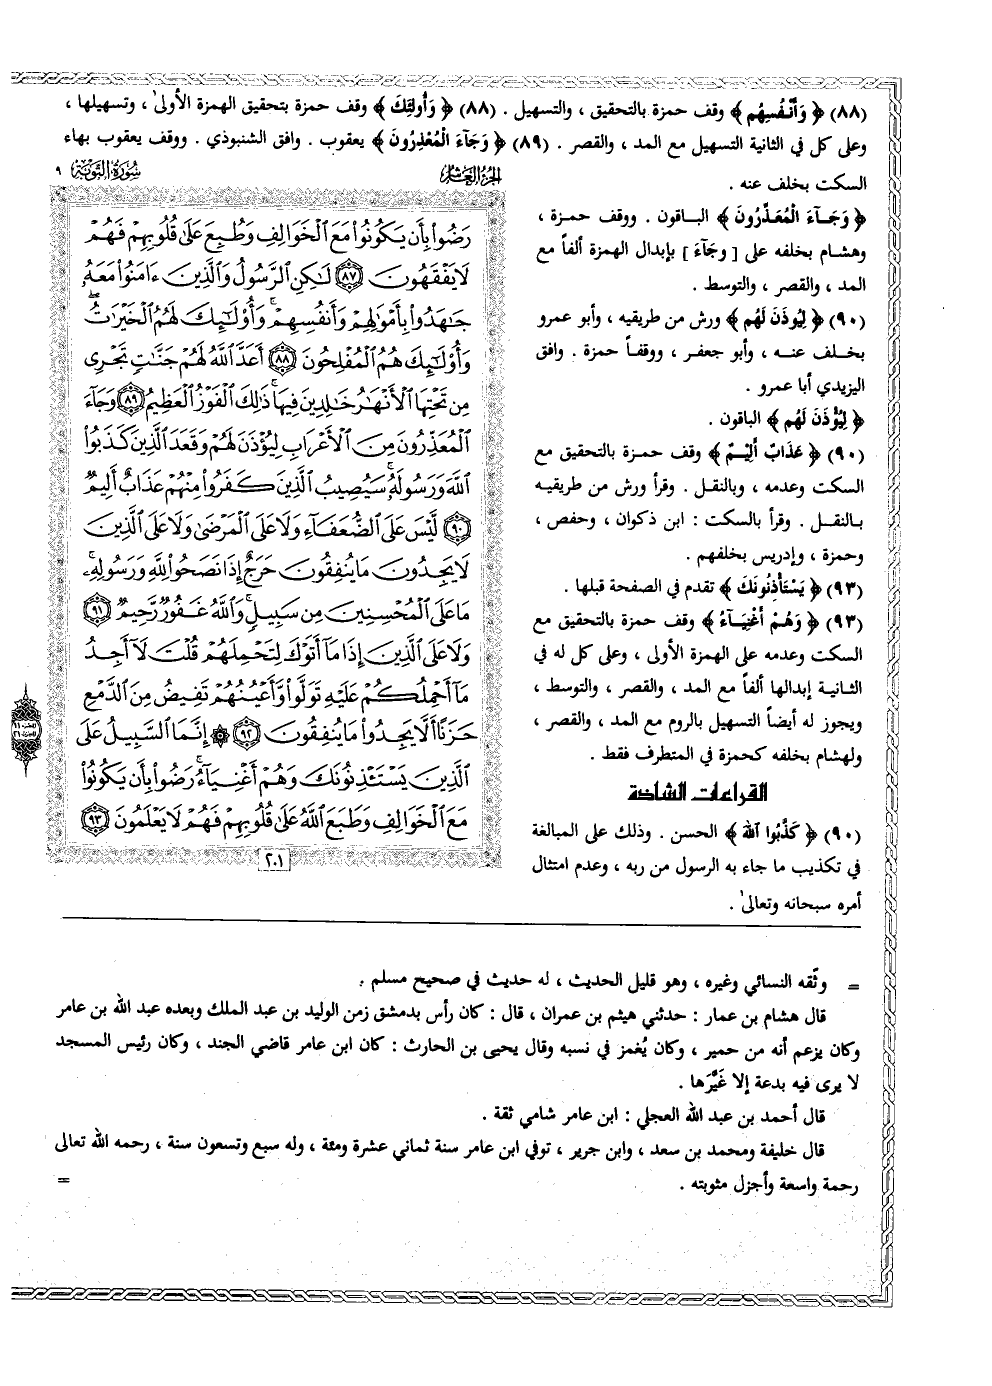 (٨٨) ﴿ وَأَنْفُسِهِم ﴾ وقف حمزة بالتحقيق ، والتسهيل . (٨٨) ﴿ وَأُولٰئِكَ ﴾ وقف حمزة بتحقيق الهمزة الأولىٰ ، وتسهيلها ،
وعلى كل في الثانية التسهيل مع المد ، والقصر . (٨٩) ﴿ وَجَآءَ الْمُعْذِرُونَ ﴾ يعقوب . وافق الشنبوذي . ووقف يعقوب بهاء
السكت بخلف عنه .
﴿ وَجَـآءَ الْمُعَـذِّرُونَ ﴾ البـاقون . ووقف حمـزة ،
وهشام بخلفه على [ وجَآءَ ] بإبدال الهمزة ألفاً مع
المد ، والقصر ، والتوسط .
(٩٠) ﴿ لِيُوذَنَ لَهُم ﴾ ورش من طريقيه ، وأبو عمرو
بخلف عنـه ، وأبو جعفر ، ووقفاً حمزة . وافق
اليزيدي أبا عمرو .
﴿ لِيُؤْذَنَ لَهُم ﴾ الباقون .
(٩٠) ﴿ عَذَابٌ أَلِيـمٌ ﴾ وقف حمـزة بالتحقيق مع
السكت وعدمه ، وبالنقل . وقرأ ورش من طريقيـه
بـالنقل . وقرأ بالسكت : ابن ذكوان ، وحفص ،
وحمزة ، وإدريس بخلفهم .
(٩٣) ﴿ يَسْتَأْذِنُونَكَ ﴾ تقدم في الصفحة قبلها .
(٩٣) ﴿ وَهُـمْ أَغْنِيَـآءُ ﴾ وقف حمزة بالتحقيق مع
السكت وعدمه على الهمزة الأولى ، وعلى كل له في
الثانيـة إبدالها ألفاً مع المد ، والقصر ، والتوسط ،
ويجوز له أيضاً التسهيل بالروم مع المد ، والقصر ،
ولهشام بخلفه كحمزة في المتطرف فقط .
القراءات الشاذة
(٩٠) ﴿ كَذَّبُوا اللهَ ﴾ الحسن . وذلك على المبالغة
في تكذيب ما جاء به الرسول من ربه ، وعدم امتثال
أمره سبحانه وتعالىٰ .
الجزء العاشر
سُورَةُ التَّوبَةِ ٩
رَضُوا۟ بِأَن يَكُونُوا۟ مَعَ ٱلْخَوَالِفِ وَطُبِعَ عَلَىٰ قُلُوبِهِمْ فَهُمْ
لَا يَفْقَهُونَ ٨٧ لَـٰكِنِ ٱلرَّسُولُ وَٱلَّذِينَ ءَامَنُوا۟ مَعَهُۥ
جَـٰهَدُوا۟ بِأَمْوَٰلِهِمْ وَأَنفُسِهِمْ ۚ وَأُو۟لَـٰٓئِكَ لَهُمُ ٱلْخَيْرَٰتُ ۖ
وَأُو۟لَـٰٓئِكَ هُمُ ٱلْمُفْلِحُونَ ٨٨ أَعَدَّ ٱللَّهُ لَهُمْ جَنَّـٰتٍ تَجْرِى
مِن تَحْتِهَا ٱلْأَنْهَـٰرُ خَـٰلِدِينَ فِيهَا ۚ ذَٰلِكَ ٱلْفَوْزُ ٱلْعَظِيمُ ٨٩ وَجَآءَ
ٱلْمُعَذِّرُونَ مِنَ ٱلْأَعْرَابِ لِيُؤْذَنَ لَهُمْ وَقَعَدَ ٱلَّذِينَ كَذَبُوا۟
ٱللَّهَ وَرَسُولَهُۥ ۚ سَيُصِيبُ ٱلَّذِينَ كَفَرُوا۟ مِنْهُمْ عَذَابٌ أَلِيمٌ
٩٠ لَّيْسَ عَلَى ٱلضُّعَفَآءِ وَلَا عَلَى ٱلْمَرْضَىٰ وَلَا عَلَى ٱلَّذِينَ
لَا يَجِدُونَ مَا يُنفِقُونَ حَرَجٌ إِذَا نَصَحُوا۟ لِلَّهِ وَرَسُولِهِۦ ۚ
مَا عَلَى ٱلْمُحْسِنِينَ مِن سَبِيلٍ ۚ وَٱللَّهُ غَفُورٌ رَّحِيمٌ ٩١
وَلَا عَلَى ٱلَّذِينَ إِذَا مَآ أَتَوْكَ لِتَحْمِلَهُمْ قُلْتَ لَآ أَجِدُ
مَآ أَحْمِلُكُمْ عَلَيْهِ تَوَلَّوا۟ وَّأَعْيُنُهُمْ تَفِيضُ مِنَ ٱلدَّمْعِ
حَزَنًا أَلَّا يَجِدُوا۟ مَا يُنفِقُونَ ٩٢ ۞ إِنَّمَا ٱلسَّبِيلُ عَلَى
ٱلَّذِينَ يَسْتَـْٔذِنُونَكَ وَهُمْ أَغْنِيَآءُ ۚ رَضُوا۟ بِأَن يَكُونُوا۟
مَعَ ٱلْخَوَالِفِ وَطَبَعَ ٱللَّهُ عَلَىٰ قُلُوبِهِمْ فَهُمْ لَا يَعْلَمُونَ ٩٣
٢٠١
= وثّقه النسائي وغيره ، وهو قليل الحديث ، له حديث في صحيح مسلم .
قال هشام بن عمار : حدثني هيثم بن عمران ، قال : كان رأس بدمشق زمن الوليد بن عبد الملك وبعده عبد الله بن عامر
وكان يزعم أنه من حمير ، وكان يُغمز في نسبه وقال يحيى بن الحارث : كان ابن عامر قاضي الجند ، وكان رئيس المسجد
لا يرى فيه بدعة إلا غَيَّرَها .
قال أحمد بن عبد الله العجلي : ابن عامر شامي ثقة .
قال خليفة ومحمد بن سعد ، وابن جرير ، توفي ابن عامر سنة ثماني عشرة ومئة ، وله سبع وتسعون سنة ، رحمه الله تعالى
رحمة واسعة وأجزل مثوبته . =